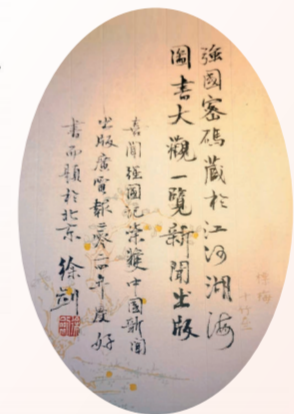 強國密碼藏於江河湖海
圖書大觀一覽新聞出版
喜聞強國記榮獲中國新聞
出版廣電報年度好
書而題於北京 徐剑